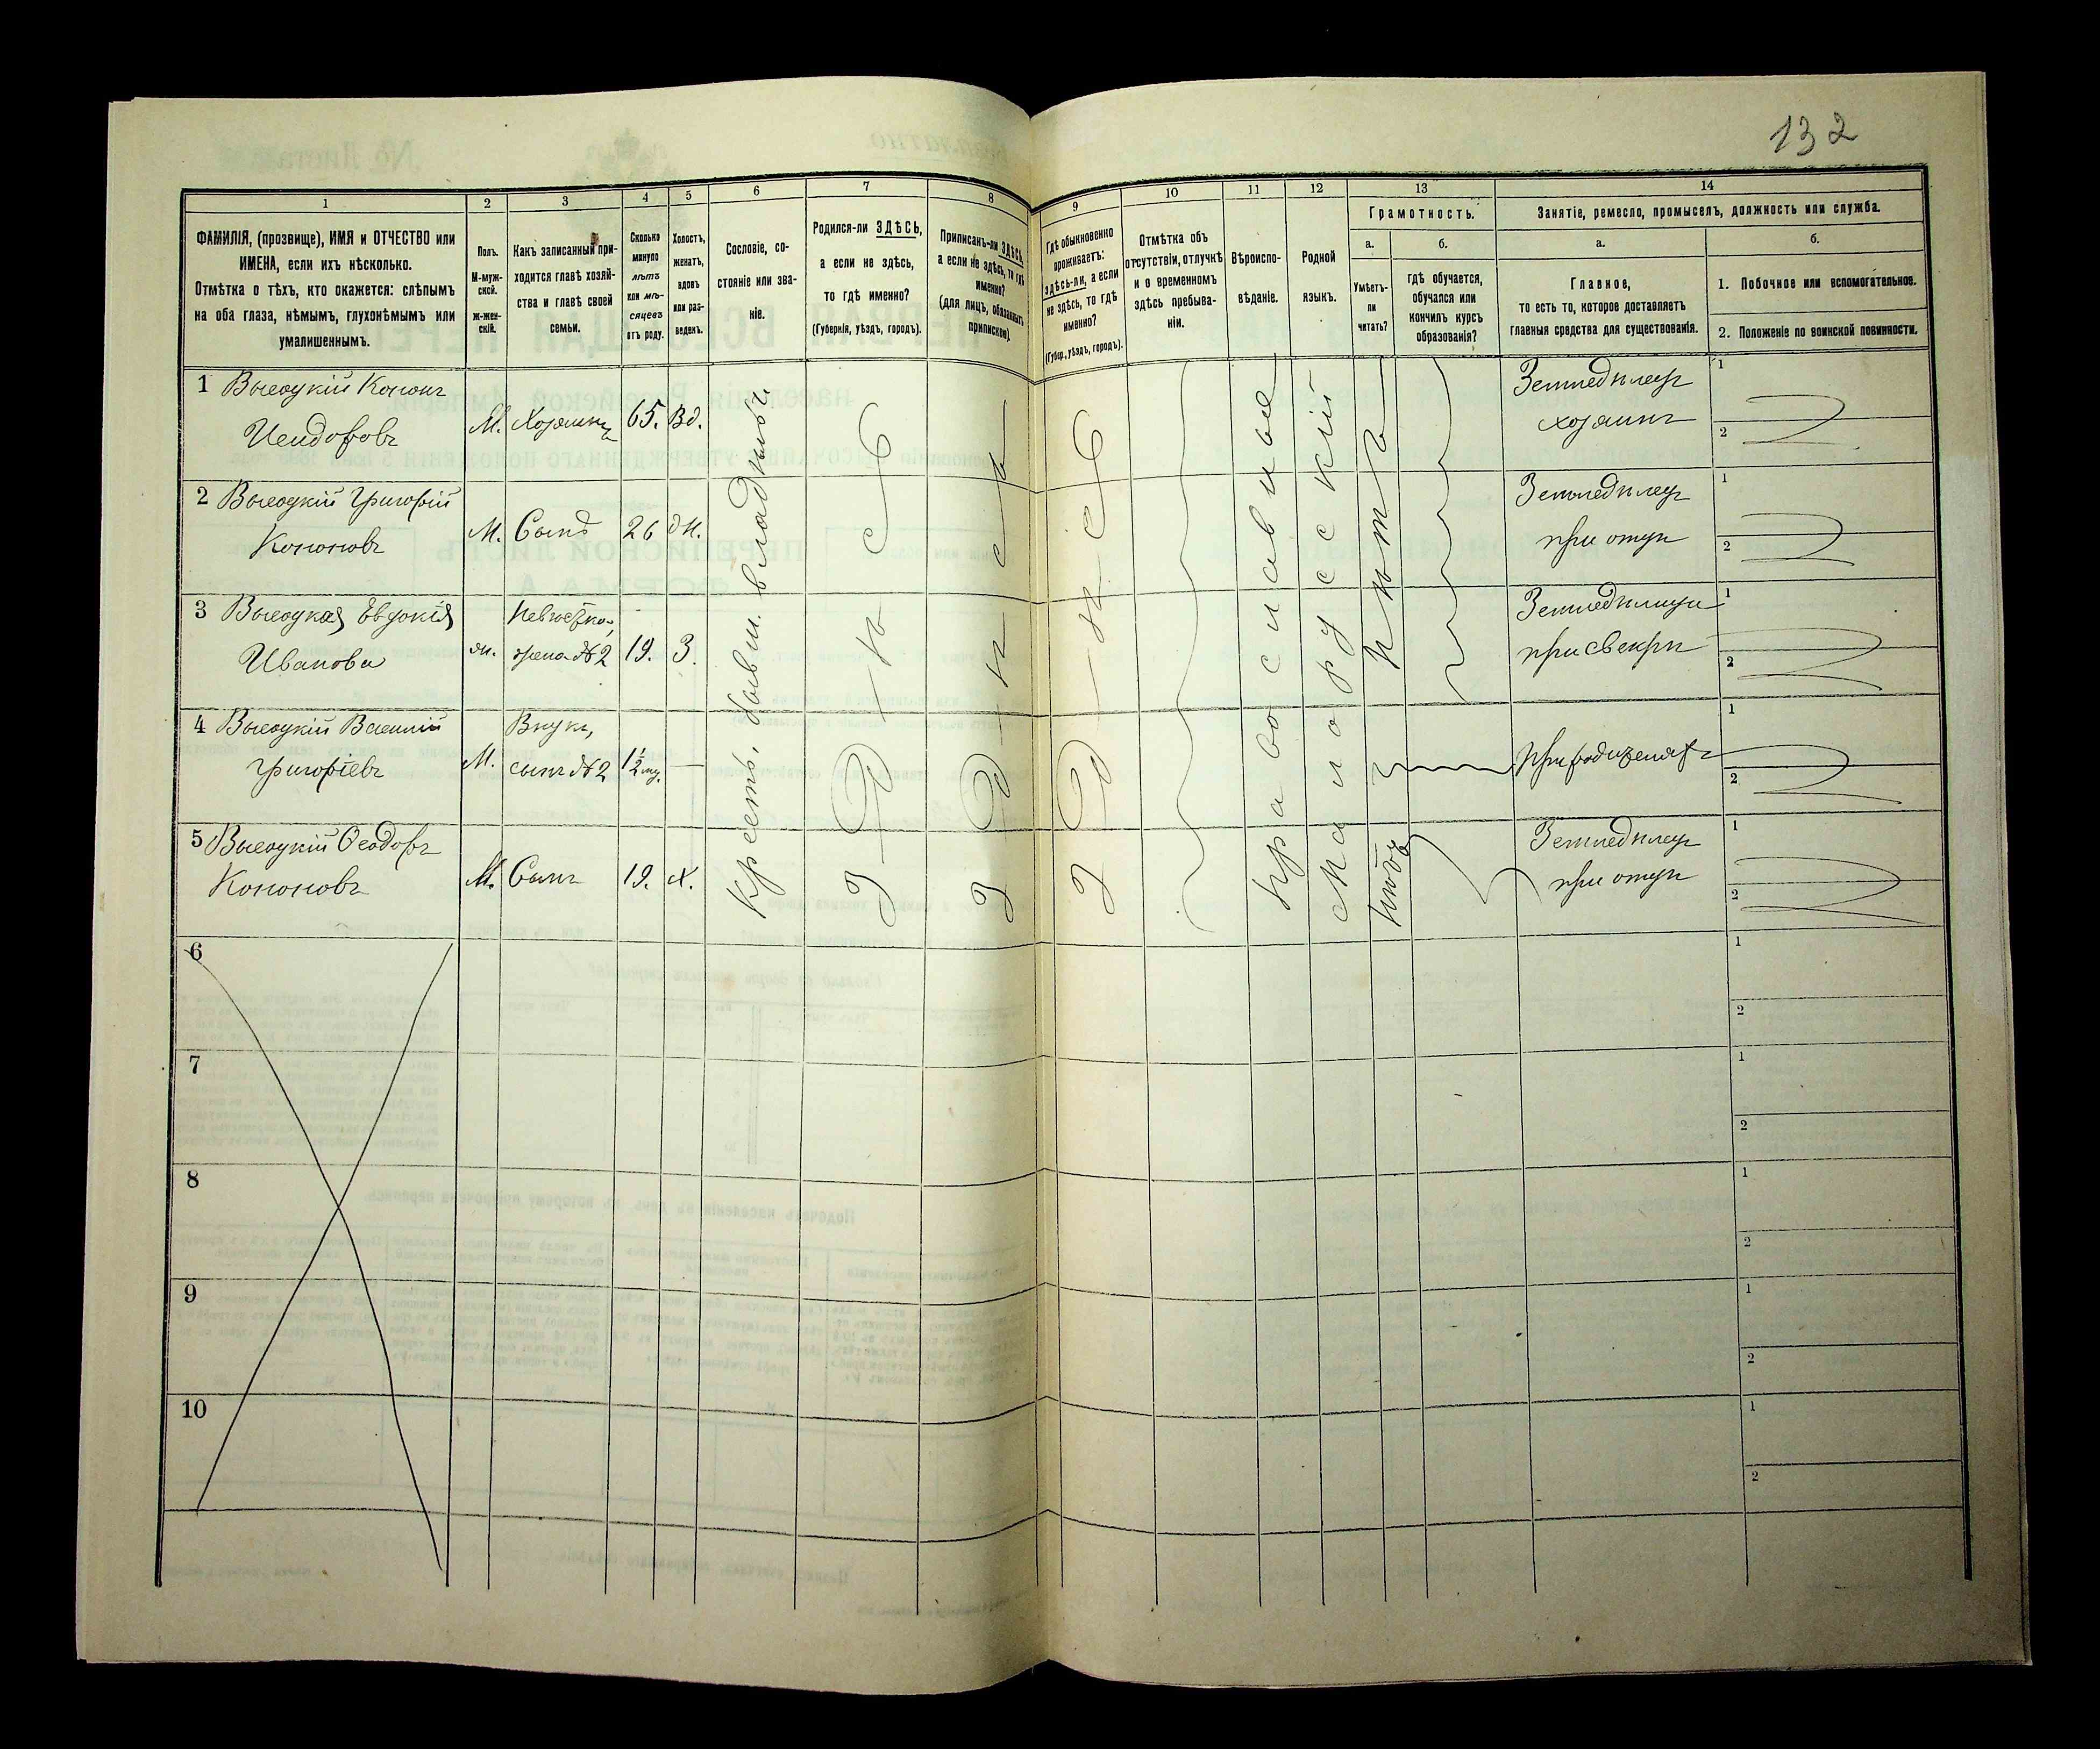 132
1
2
3
4
5
6
7
8
9
10
11
12
13
14
ФАМИЛІЯ, (прозвище), ИМЯ и ОТЧЕСТВО или
ИМЕНА, если ихъ нѣсколько.
Отмѣтка о тѣхъ, кто окажется: слѣпымъ
на оба глаза, нѣмымъ, глухонѣмымъ или
умалишеннымъ.
Полъ.
М-муж-
ской.
ж-жен-
скій.
Какъ записанный при-
ходится главѣ хозяй-
ства и главѣ своей
семьи.
Сколько
минуло
лѣтъ
или мѣ-
сяцевъ
отъ роду.
Холостъ,
женатъ,
вдовъ
или раз-
веденъ.
Сословіе, со-
стояніе или зва-
ніе.
Родился-ли ЗДѢСЬ,
а если не здѣсь,
то гдѣ именно?
(Губернія, уѣздъ, городъ).
Приписанъ-ли ЗДѢСЬ,
а если не здѣсь, то гдѣ
именно?
(для лицъ, обязанныхъ
припискою).
Гдѣ обыкновенно
проживаетъ:
здѣсь-ли, а если
не здѣсь, то гдѣ
именно?
(Губер., уѣздъ, городъ).
Отмѣтка объ
отсутствіи, отлучкѣ
и о временномъ
здѣсь пребыва-
ніи.
Вѣроиспо-
вѣданіе.
Родной
языкъ.
Грамотность.
а.
б.
Умѣетъ-
ли
читать?
гдѣ обучается,
обучался или
кончилъ курсъ
образованія?
Занятіе, ремесло, промыселъ, должность или служба.
а.
б.
Главное,
то есть то, которое доставляетъ
главныя средства для существованія.
1. Побочное или вспомогательное.
2. Положеніе по воинской повинности.
1 Высоцкій Кононъ
Исидоровъ
М. Хозяинъ 65. Вд.
Земледѣлецъ
хозяинъ
1
2
2 Высоцкій Григорій
Кононовъ
М. Сынъ 26 ж.
Земледѣлецъ
при отцѣ
1
2
3 Высоцкая Евдокія
Иванова
ж. Невѣстка,
жена №2 19. З.
Земледѣлица
при свекрѣ
1
2
4 Высоцкій Василій
Григоріевъ
М. Внукъ,
сынъ №2 1½ —
При родителяхъ
1
2
5 Высоцкій Ѳеодоръ
Кононовъ
М. Сынъ 19. Х.
Земледѣлецъ
при отцѣ
1
2
Крестъ, бывш. владѣльч.
здѣсь
здѣсь
здѣсь
Православное
Малорусскій
нѣтъ
нѣтъ
6
1
2
7
1
2
8
1
2
9
1
2
10
1
2